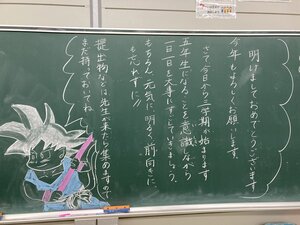 明けましておめでとうございます
今年もよろしくお願いします。
さて今日から三学期が始まります
五年生になることを意識しながら
一日一日を大事にすごしていきましょう。
もちろん、元気に、明るく、前向きに、
も忘れずに!!
提出物などは先生が来たら集めますので
まだ持っておいてね。